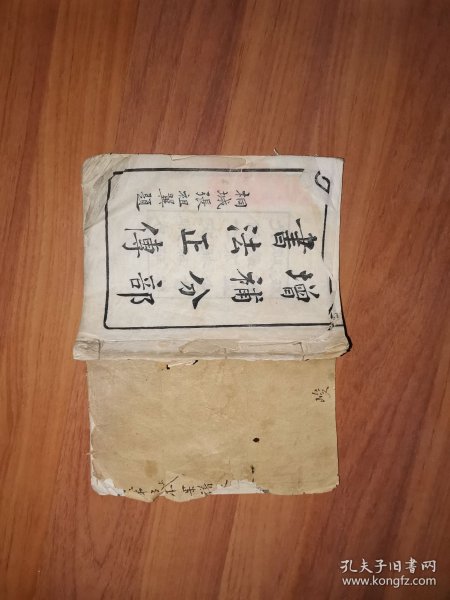 增補分部
書法正傳
桐城張祖翼題
孔夫子旧书网
www.kongfz.com